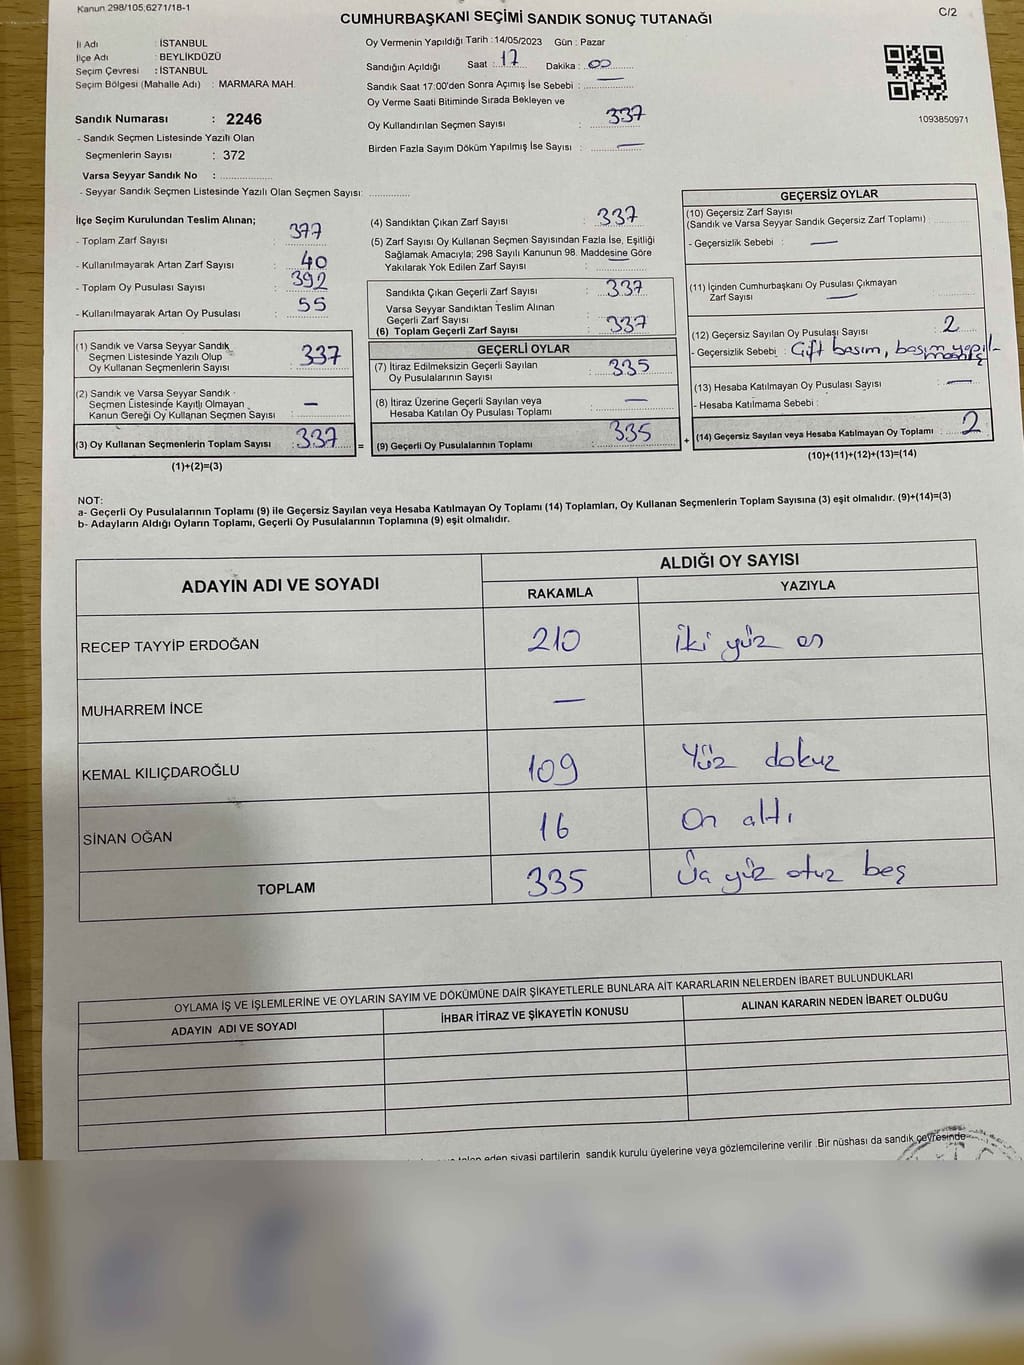 Kanun 298/105;6271/18-1
C/2
CUMHURBAŞKANI SEÇİMİ SANDIK SONUÇ TUTANAĞI
İl Adı : İSTANBUL
İlçe Adı : BEYLİKDÜZÜ
Seçim Çevresi : İSTANBUL
Seçim Bölgesi (Mahalle Adı) : MARMARA MAH.
Oy Vermenin Yapıldığı Tarih : 14/05/2023 Gün : Pazar
Sandığın Açıldığı Saat : 17 Dakika : 00
Sandık Saat 17:00'den Sonra Açımış İse Sebebi : —
Oy Verme Saati Bitiminde Sırada Bekleyen ve
Oy Kullandırılan Seçmen Sayısı : 337
Birden Fazla Sayım Döküm Yapılmış İse Sayısı : —
1093850971
Sandık Numarası : 2246
- Sandık Seçmen Listesinde Yazılı Olan
Seçmenlerin Sayısı : 372
Varsa Seyyar Sandık No :
- Seyyar Sandık Seçmen Listesinde Yazılı Olan Seçmen Sayısı:
İlçe Seçim Kurulundan Teslim Alınan;
- Toplam Zarf Sayısı : 377
- Kullanılmayarak Artan Zarf Sayısı : 40
- Toplam Oy Pusulası Sayısı : 392
- Kullanılmayarak Artan Oy Pusulası : 55
(1) Sandık ve Varsa Seyyar Sandık
Seçmen Listesinde Yazılı Olup
Oy Kullanan Seçmenlerin Sayısı : 337
(2) Sandık ve Varsa Seyyar Sandık
Seçmen Listesinde Kayıtlı Olmayan
Kanun Gereği Oy Kullanan Seçmen Sayısı : —
(3) Oy Kullanan Seçmenlerin Toplam Sayısı : 337 =
(1)+(2)=(3)
(4) Sandıktan Çıkan Zarf Sayısı : 337
(5) Zarf Sayısı Oy Kullanan Seçmen Sayısından Fazla İse, Eşitliği
Sağlamak Amacıyla; 298 Sayılı Kanunun 98. Maddesine Göre
Yakılarak Yok Edilen Zarf Sayısı : —
Sandıkta Çıkan Geçerli Zarf Sayısı : 337
Varsa Seyyar Sandıktan Teslim Alınan
Geçerli Zarf Sayısı :
(6) Toplam Geçerli Zarf Sayısı : 337
GEÇERLİ OYLAR
(7) İtiraz Edilmeksizin Geçerli Sayılan
Oy Pusulalarının Sayısı : 335
(8) İtiraz Üzerine Geçerli Sayılan veya
Hesaba Katılan Oy Pusulası Toplamı : —
(9) Geçerli Oy Pusulalarının Toplamı : 335 +
GEÇERSİZ OYLAR
(10) Geçersiz Zarf Sayısı
(Sandık ve Varsa Seyyar Sandık Geçersiz Zarf Toplamı)
- Geçersizlik Sebebi : —
(11) İçinden Cumhurbaşkanı Oy Pusulası Çıkmayan
Zarf Sayısı —
(12) Geçersiz Sayılan Oy Pusulası Sayısı : 2
- Geçersizlik Sebebi : Çift basım, basım yapıl-
mamış
(13) Hesaba Katılmayan Oy Pusulası Sayısı : —
- Hesaba Katılmama Sebebi :
(14) Geçersiz Sayılan veya Hesaba Katılmayan Oy Toplamı : 2
(10)+(11)+(12)+(13)=(14)
NOT:
a- Geçerli Oy Pusulalarının Toplamı (9) ile Geçersiz Sayılan veya Hesaba Katılmayan Oy Toplamı (14) Toplamları, Oy Kullanan Seçmenlerin Toplam Sayısına (3) eşit olmalıdır. (9)+(14)=(3)
b- Adayların Aldığı Oyların Toplamı, Geçerli Oy Pusulalarının Toplamına (9) eşit olmalıdır.
ADAYIN ADI VE SOYADI ALDIĞI OY SAYISI
RAKAMLA YAZIYLA
RECEP TAYYİP ERDOĞAN 210 iki yüz on
MUHARREM İNCE —
KEMAL KILIÇDAROĞLU 109 Yüz dokuz
SİNAN OĞAN 16 On altı
TOPLAM 335 Üç yüz otuz beş
OYLAMA İŞ VE İŞLEMLERİNE VE OYLARIN SAYIM VE DÖKÜMÜNE DAİR ŞİKAYETLERLE BUNLARA AİT KARARLARIN NELERDEN İBARET BULUNDUKLARI
ADAYIN ADI VE SOYADI İHBAR İTİRAZ VE ŞİKAYETİN KONUSU ALINAN KARARIN NEDEN İBARET OLDUĞU
eden siyasi partilerin sandık kurulu üyelerine veya gözlemcilerine verilir .Bir nüshası da sandık çevresinde